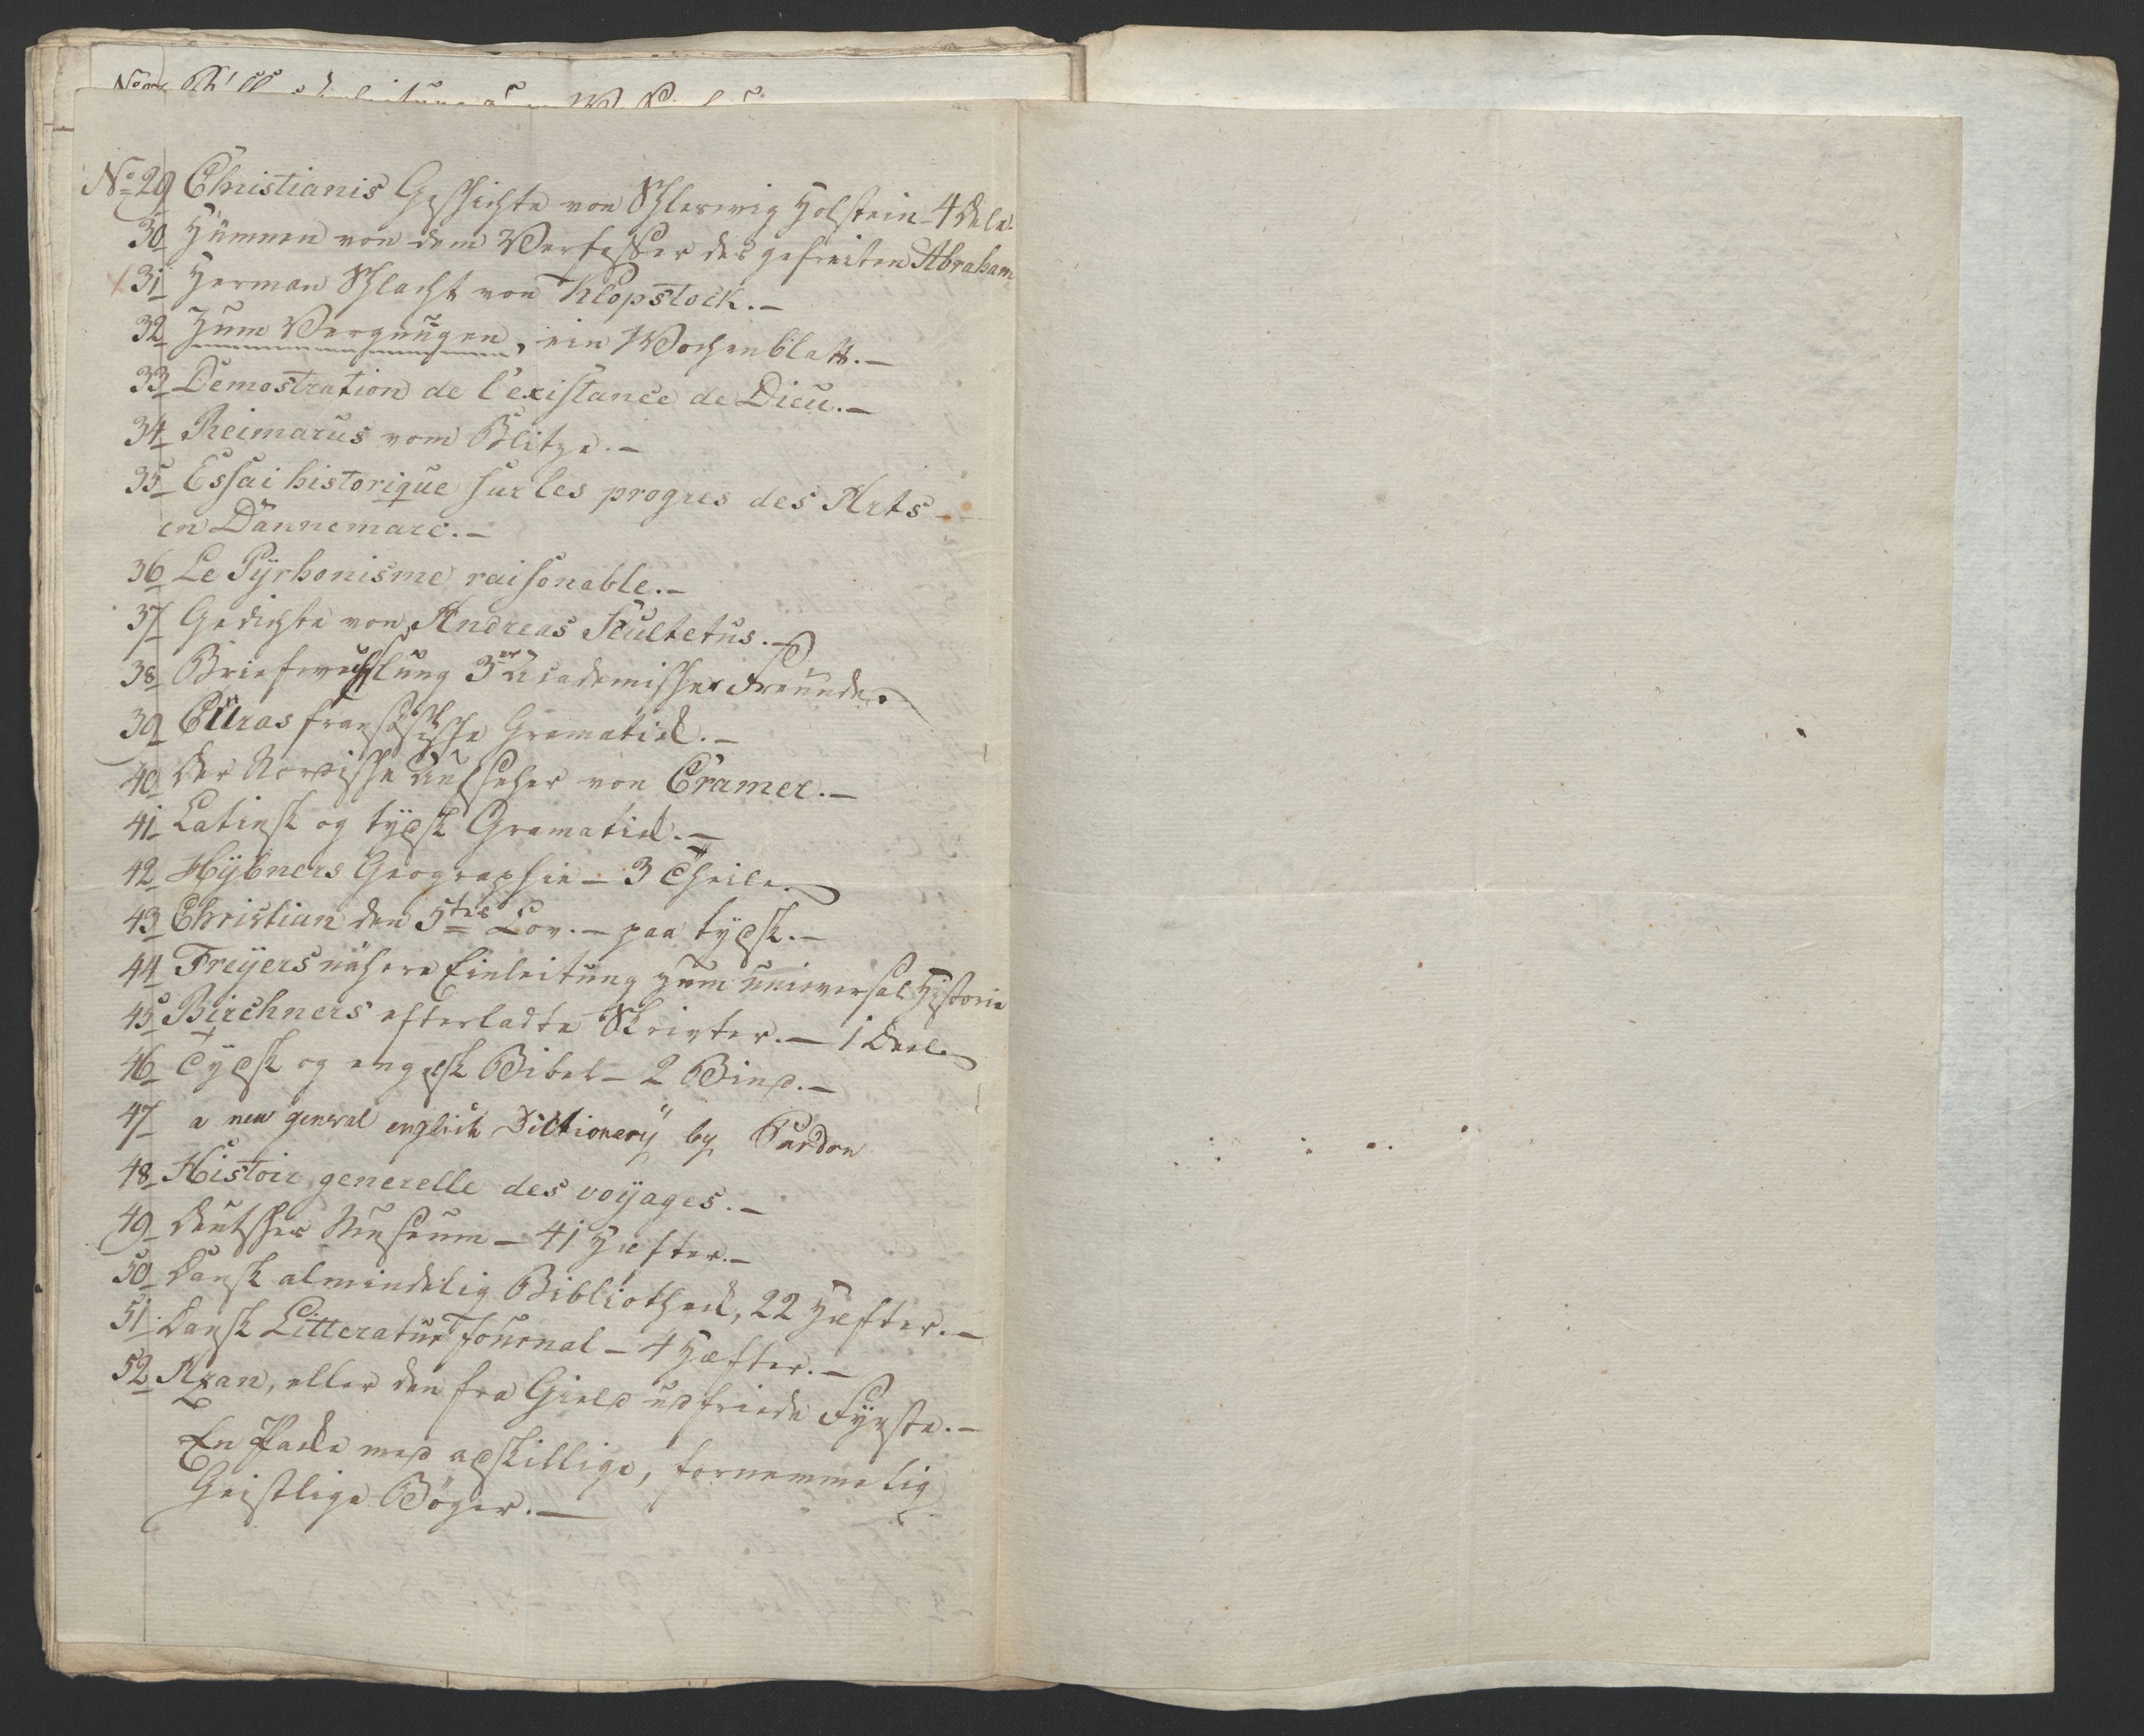 No 29 Christianis Geschichte von Schleswig Holstein - 4 Dele.
30 Hümnen von dem Verfasser des gefreiten Abraham
31 Herman Schlacht von Klopstock. -
32 Zum Vergnugen, ein Wochenblatt. -
33 Demostration de l'existance de Dieu. -
34 Reimarus vom Blitze. -
35 Essai historique sur les progres des Arts -
en Dannemarc. -
36 Le Pÿrhonisme raisonable. -
37 Gedichte von Andreas Scultetus. -
38 Briefwechslung 3er Academischer Freunde.
39 Curas fransösische Gramatick. -
40 Der Nordische Aufseher von Cramer. -
41 Latinsk og tÿdsk Gramatick. -
42 Hÿbners Geographie - 3 Theile.
43 Christian den 5tes Lov. - paa tÿdsk. -
44 Freÿers nähere Einleitung zum universal Historie
45 Birchners efterladte Skrivter. - 1 Deel.
46 Tÿdsk og engelsk Bibel - 2 Bind. -
47 a new general englich Dictionary by Pardon
48 Histoir generelle des voÿages. -
49 Deutsches Museum - 41 Hæfter. -
50 Dansk almindelig Bibliotheck, 22 Hæfter. -
51 Dansk Litteratur Journal - 4 Hæfter. -
52 Azan, eller den fra Gield udfriede Fÿrste. -
En Packe med adskillige, fornemmelig
Geistlige Böger. -